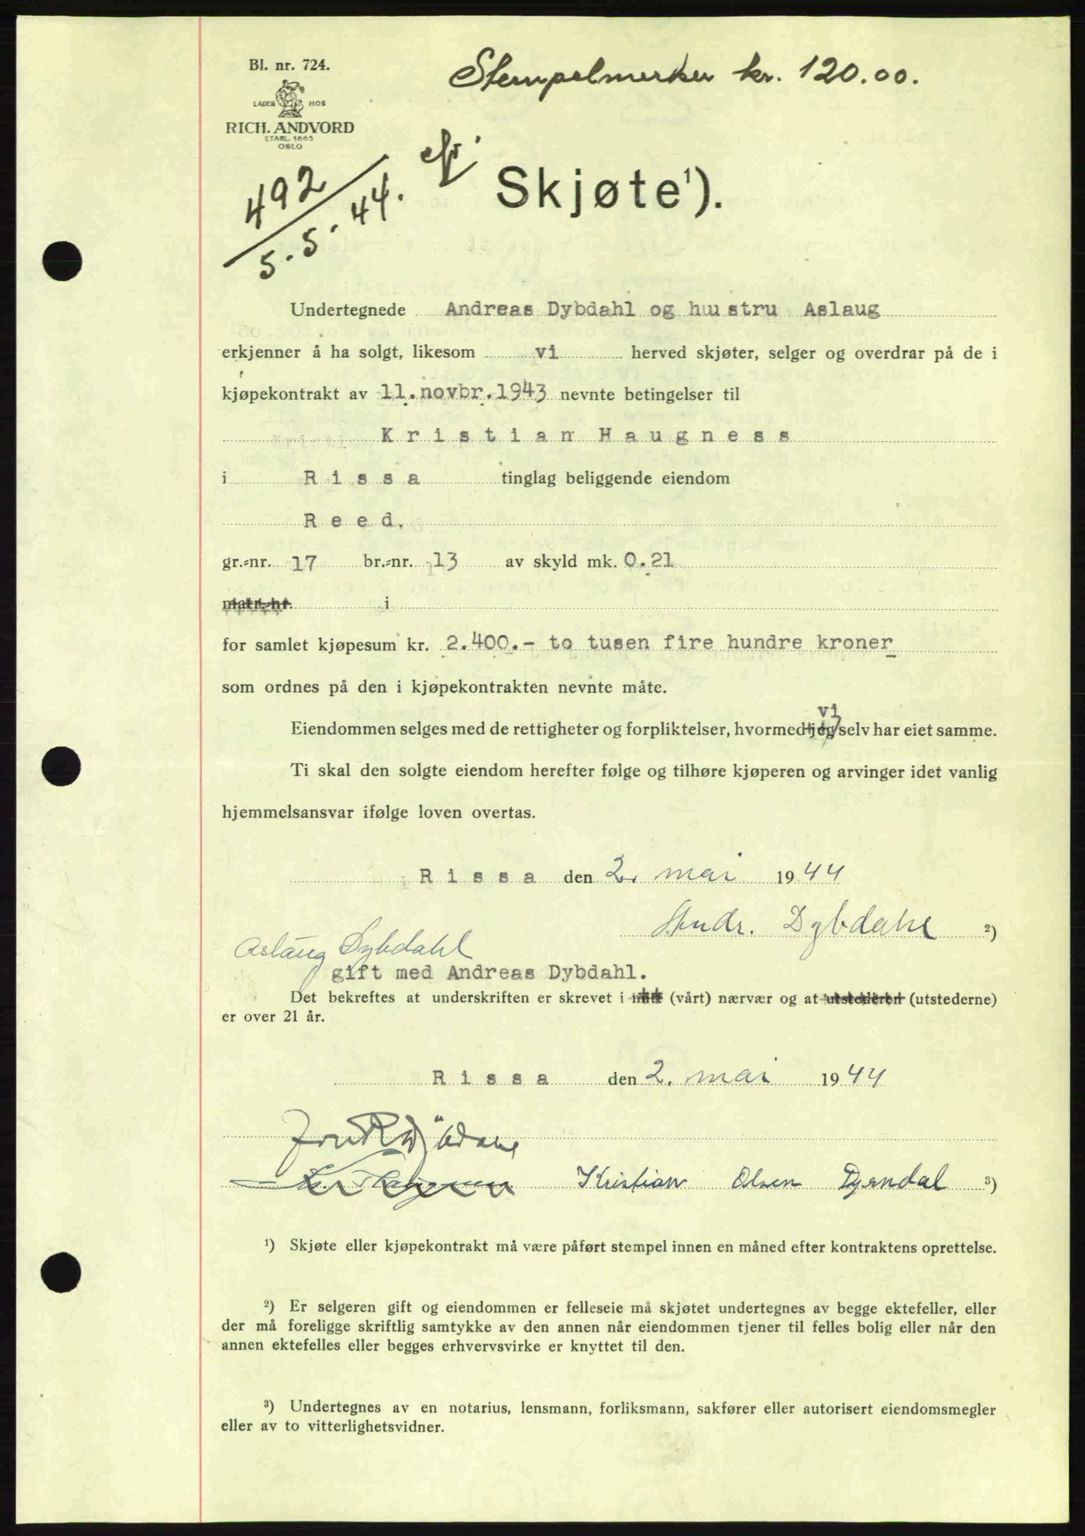 Bl. nr. 724.
Stempelmerker kr. 120.00.
LAGER HOS
RICH. ANDVORD
ETABL. 1865
OSLO
492
5.5.44.
Skjøte¹).
Undertegnede Andreas Dybdahl og hustru Aslaug
erkjenner å ha solgt, likesom vi herved skjøter, selger og overdrar på de i
kjøpekontrakt av 11.novbr.1943 nevnte betingelser til
Kristian Haugness
i Rissa tinglag beliggende eiendom
Reed.
gr.-nr. 17 br.-nr. 13 av skyld mk. 0.21
matr.-nr. i
for samlet kjøpesum kr. 2.400.- to tusen fire hundre kroner
som ordnes på den i kjøpekontrakten nevnte måte.
vi
Eiendommen selges med de rettigheter og forpliktelser, hvormed jeg selv har eiet samme.
Ti skal den solgte eiendom herefter følge og tilhøre kjøperen og arvinger idet vanlig
hjemmelsansvar ifølge loven overtas.
Rissa den 2. mai 1944
Andr. Dybdahl ²)
Aslaug Dybdahl
gift med Andreas Dybdahl.
Det bekreftes at underskriften er skrevet i mitt (vårt) nærvær og at utstederen (utstederne)
er over 21 år.
Rissa den 2. mai 1944
Kristian Olsen Dyrndal ³)
¹) Skjøte eller kjøpekontrakt må være påført stempel innen en måned efter kontraktens oprettelse.
²) Er selgeren gift og eiendommen er felleseie må skjøtet undertegnes av begge ektefeller, eller
der må foreligge skriftlig samtykke av den annen når eiendommen tjener til felles bolig eller når den
annen ektefelles eller begges erhvervsvirke er knyttet til den.
³) Undertegnes av en notarius, lensmann, forliksmann, sakfører eller autorisert eiendomsmegler
eller av to vitterlighetsvidner.